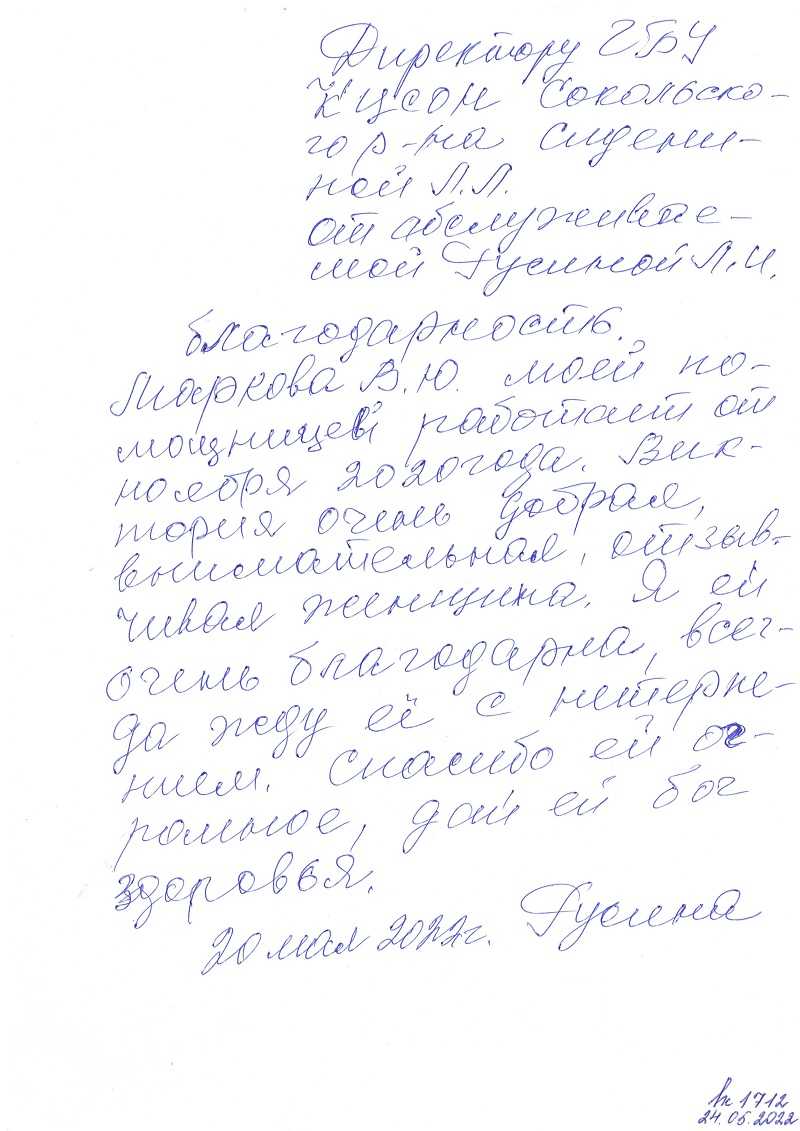 Директору ГБУ
КЦСОН Сокольско-
го р-на Сидени-
ной Л.Л.
от абслуживае-
мой Гусиной Л.И.
благодарность.
Маркова В.Ю. моей по-
мощницей работает от
ноября 2020 года. Вик-
тория очень добрая,
внимательная, отзыв-
чивая женщина. Я ей
очень благодарна, всег-
да жду её с нетерпе-
нием. Спасибо ей ог-
ромное, дай ей бог
здоровья.
20 мая 2022г. Гусина
вх 1712
24.05.2022